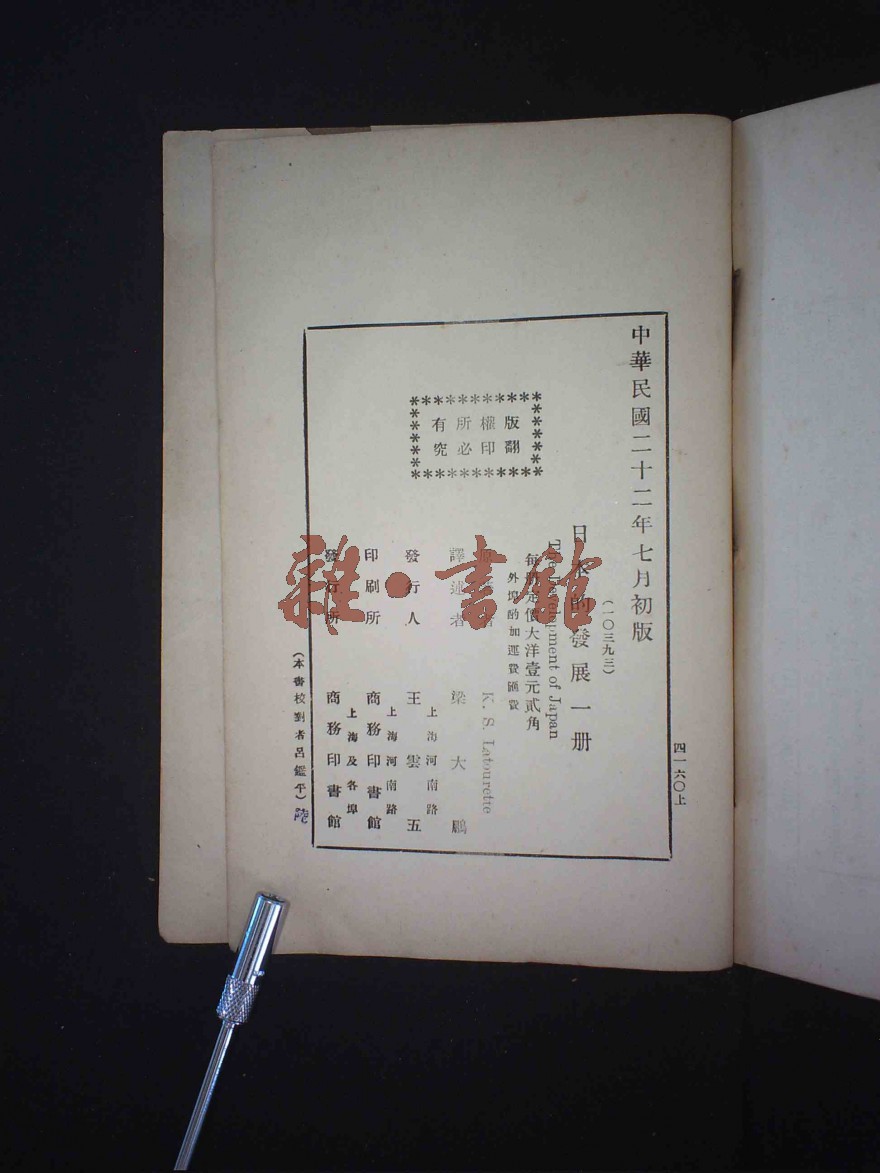 中華民國二十二年七月初版
四一六〇上
(一〇三九三)
日本的發展一册
The Development of Japan
每册定價大洋壹元貳角
外埠酌加運費匯費
版權所有
翻印必究
原著者 K. S. Latourette
譯述者 梁大鵬
發行人 王雲五
上海河南路
印刷所 商務印書館
上海河南路
發行所 商務印書館
上海及各埠
(本書校對者呂鑑平)
雜·書館